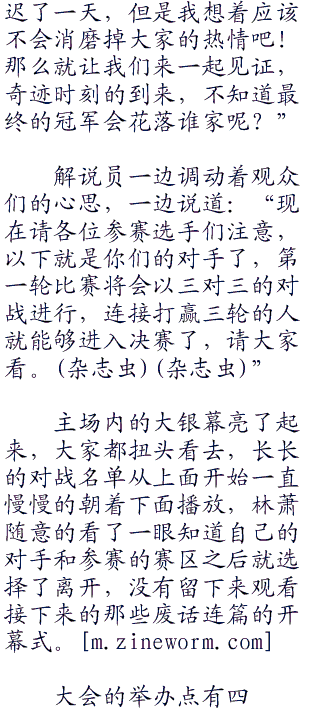 迟了一天，但是我想着应该
不会消磨掉大家的热情吧！
那么就让我们来一起见证，
奇迹时刻的到来，不知道最
终的冠军会花落谁家呢？”
解说员一边调动着观众
们的心思，一边说道：“现
在请各位参赛选手们注意，
以下就是你们的对手了，第
一轮比赛将会以三对三的对
战进行，连接打赢三轮的人
就能够进入决赛了，请大家
看。(杂志虫)(杂志虫)”
主场内的大银幕亮了起
来，大家都扭头看去，长长
的对战名单从上面开始一直
慢慢的朝着下面播放，林萧
随意的看了一眼知道自己的
对手和参赛的赛区之后就选
择了离开，没有留下来观看
接下来的那些废话连篇的开
幕式。[m.zineworm.com]
大会的举办点有四